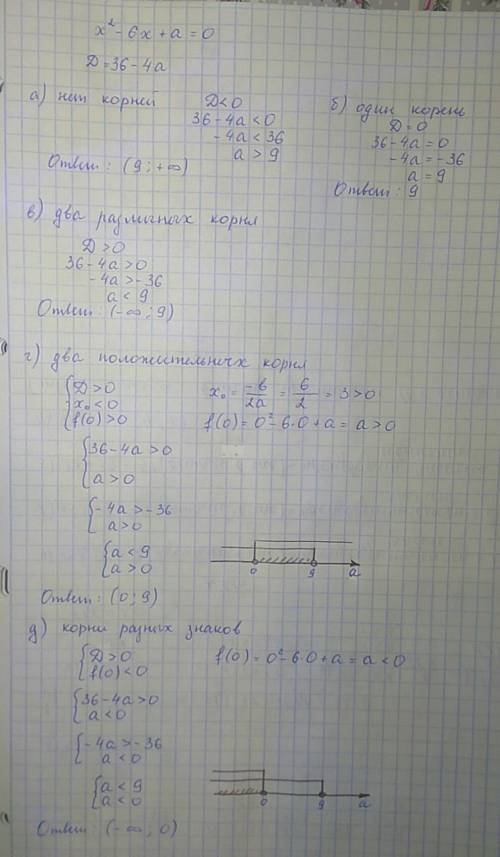 x² - 6x + a = 0
D = 36 - 4a
а) нет корней
D < 0
36 - 4a < 0
-4a < 36
a > 9
Ответ: (9; +∞)
б) один корень
D = 0
36 - 4a = 0
-4a = -36
a = 9
Ответ: 9
в) два различных корня
D > 0
36 - 4a > 0
-4a > -36
a < 9
Ответ: (-∞; 9)
г) два положительных корня
{D > 0
x₀ < 0
f(0) > 0
x₀ = -b/2a = 6/2 = 3 > 0
f(0) = 0² - 6·0 + a = a > 0
{36 - 4a > 0
a > 0
{-4a > -36
a > 0
{a < 9
a > 0
0 9 a
Ответ: (0; 9)
д) корни разных знаков
{D > 0
f(0) < 0
f(0) = 0² - 6·0 + a = a < 0
{36 - 4a > 0
a < 0
{-4a > -36
a < 0
{a < 9
a < 0
0 9 a
Ответ (-∞; 0)